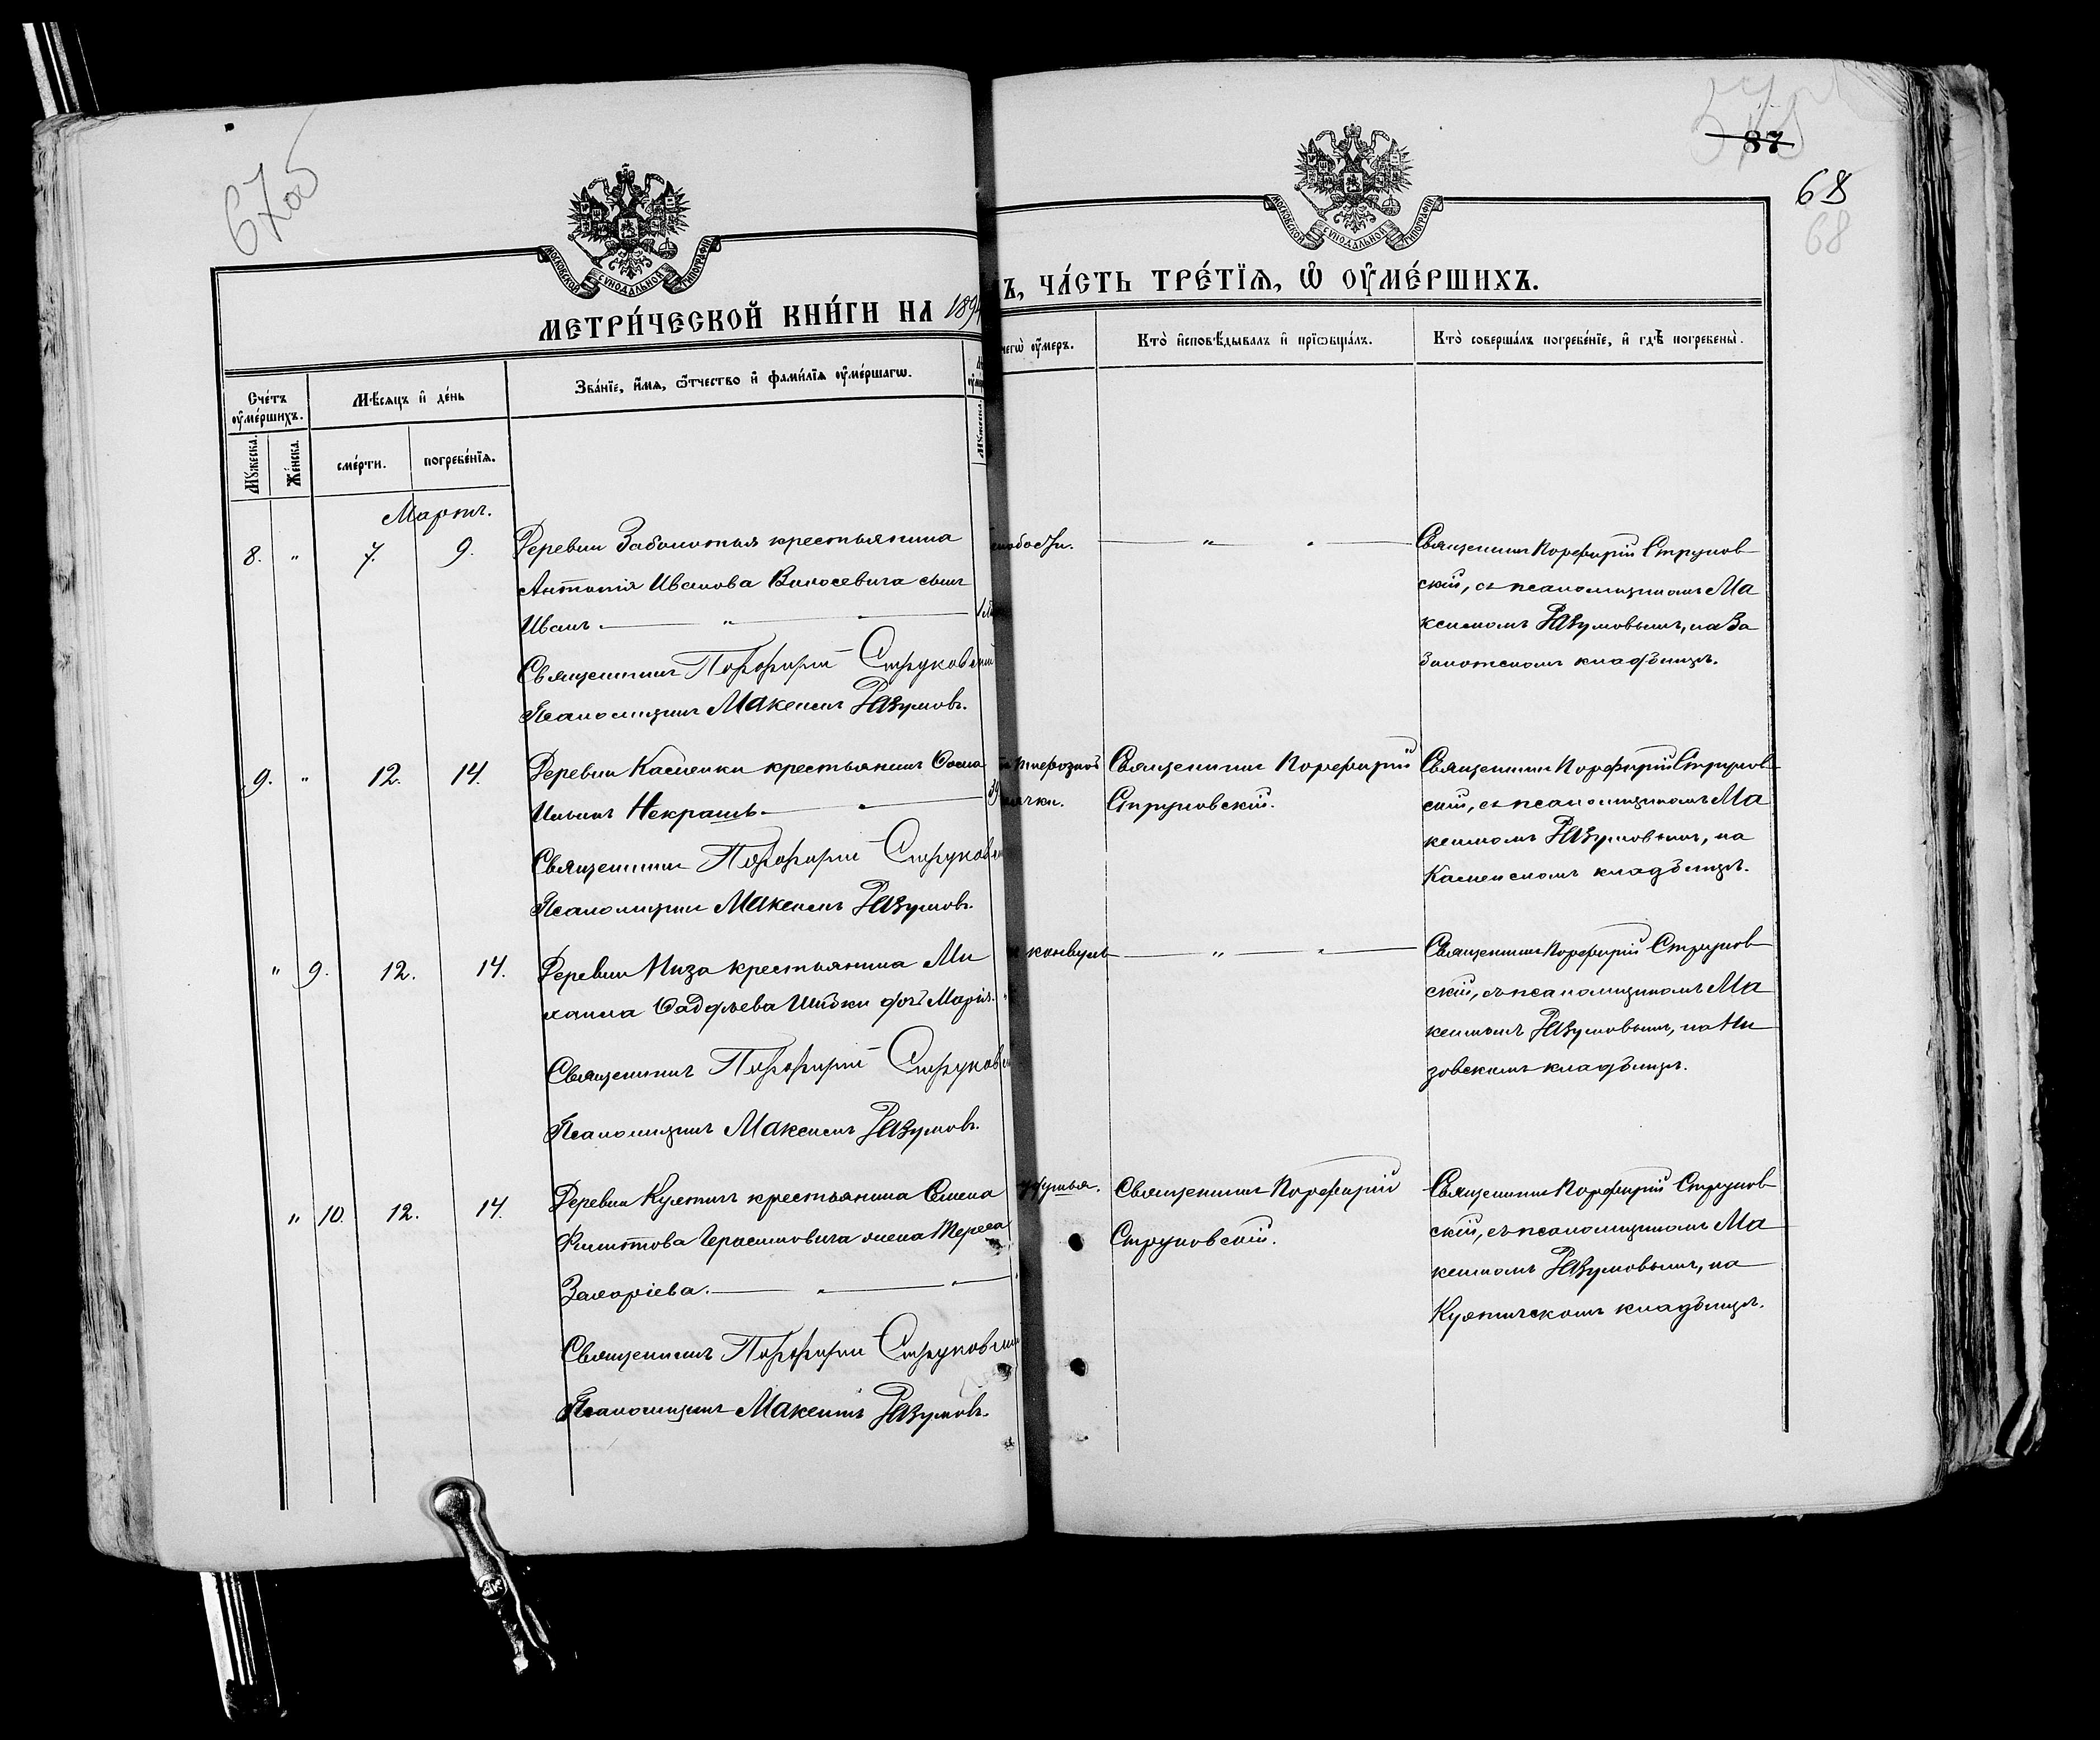 67об
МОСКОВСКОЙ СѴНОДАЛЬНОЙ ТИПОГРАФІИ
МЕТРИ́ЧЕСКОЙ КНИ́ГИ НА 189
Сче́тъ ᲂу҆ме́ршихъ.
Мѣ́сяцъ и҆ де́нь
Зва́нїе, и҆́мя, ѻ҆́тчество и҆ фами́лїя ᲂу҆ме́ршагѡ.
Мꙋ́жеска.
Же́нска.
сме́рти.
погребе́нїя.
Мꙋ́жеска.
Мартъ.
8. " 7. 9.
Деревни Заболотья крестьянина
Антонія Иванова Волосевича сынъ
Иванъ.
Священникъ Порфирій Струковскій
Псаломщикъ Максимъ Разумовъ.
9. " 12. 14.
Деревни Каменки крестьянинъ Ѳома
Ильинъ Некрашъ.
Священникъ Порфирій Струковс
Псаломщикъ Максимъ Разумовъ.
" 9. 12. 14.
Деревни Низа крестьянина Ми
хаила Ѳаддѣева Шибки дочь Марія.
Священникъ Порфирій Струковс
Псаломщикъ Максимъ Разумовъ.
" 10. 12. 14.
Деревни Кулятичъ крестьянина Семена
Герасимовича жена Тереса
Захаріева.
Священникъ Порфирій Струковскій
Псаломщикъ Максимъ Разумовъ.
87
68
68
МОСКОВСКОЙ СѴНОДАЛЬНОЙ ТИПОГРАФІИ
Ъ, ЧА́СТЬ ТРЕ́ТЇЯ, Ѡ҆ ОУ҆МЕ́РШИХЪ.
чегѡ̀ ᲂу҆́меръ.
Кто̀ и҆сповѣ́дывалъ и҆ прїѡбща́лъ.
Кто̀ соверша́лъ погребе́нїе, и҆ гдѣ̀ погребены̀.
слабости.
" "
Священникъ Порфирій Струков
скій, съ псаломщикомъ Ма
ксимомъ Разумовымъ, на За
болотскомъ кладбищѣ.
Священникъ Порфирій
Струковскій.
Священникъ Порфирій Струков
скій, съ псаломщикомъ Ма
ксимомъ Разумовымъ, на
Каменскомъ кладбищѣ.
конвульс
" "
Священникъ Порфирій Струков
скій, съ псаломщикомъ Ма
ксимомъ Разумовымъ, на Ни
зовскомъ кладбищѣ.
удушья.
Священникъ Порфирій
Струковскій.
Священникъ Порфирій Струков
скій, съ псаломщикомъ Ма
ксимомъ Разумовымъ, на
Кулятичскомъ кладбищѣ.